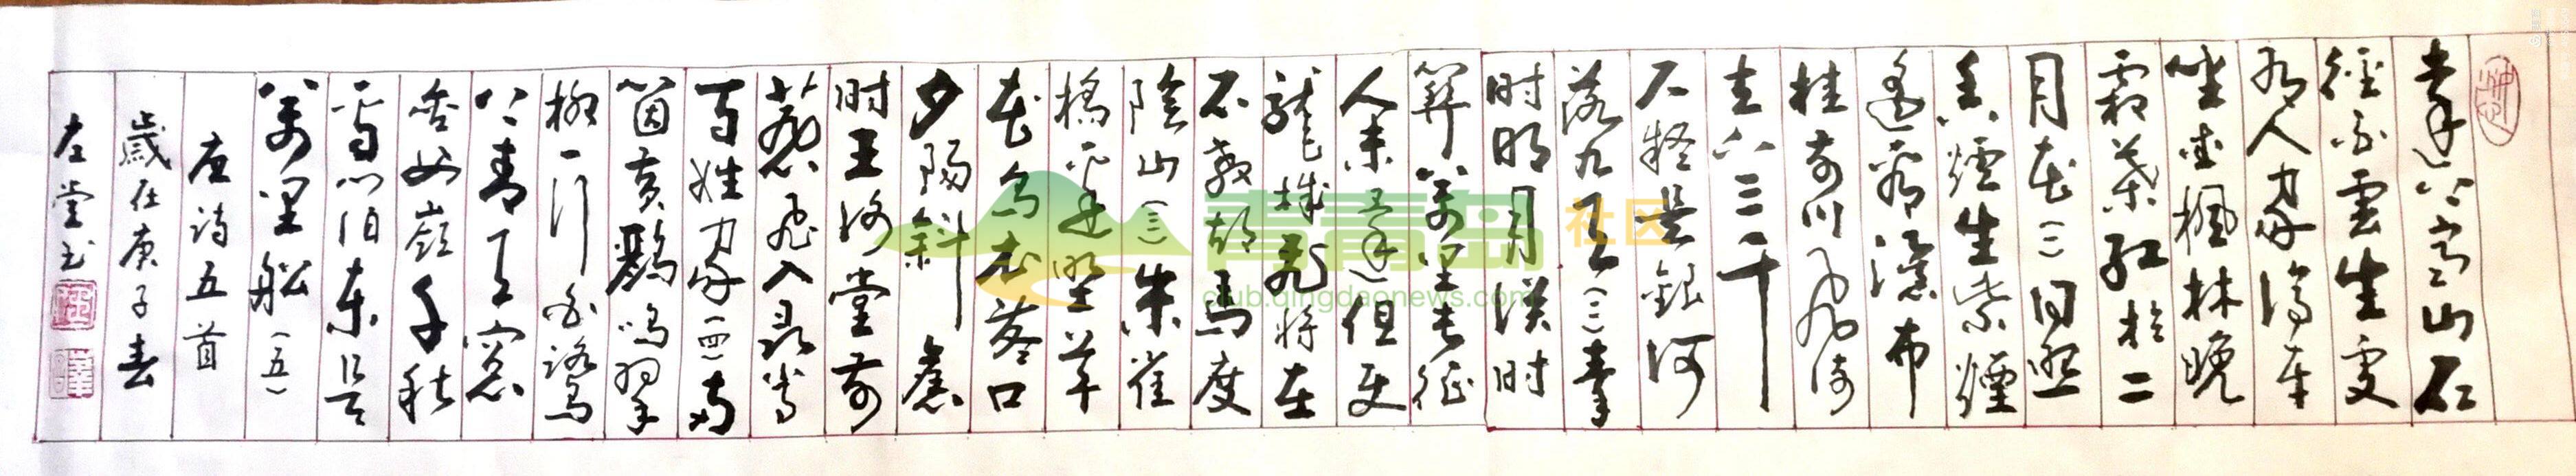 遠上寒山石
徑斜白雲生處
有人家停車
坐愛楓林晚
霜葉紅於二
月花(一)日照
香爐生紫煙
遙看瀑布
掛前川飛流
直下三千
尺疑是銀河
落九天(二)秦
时明月漢时
關萬里長征
人未還但使
龍城飛將在
不教胡馬度
陰山(三)朱雀
橋邊野草
花烏衣巷口
夕陽斜舊
时王謝堂前
燕飛入尋常
百姓家(四)两
箇黄鸝鳴翠
柳一行白鷺
上青天窓
含西嶺千秋
雪門泊東吳
萬里船(五)
唐诗五首
歲在庚子春
左堂书
青青岛社区
club.qingdaonews.com